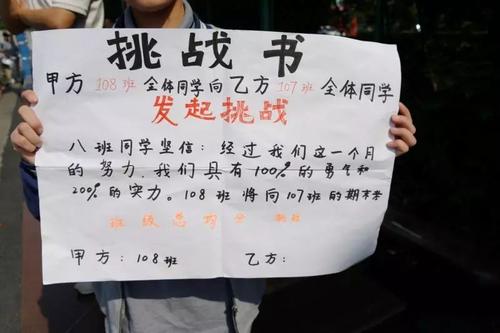 挑战书
甲方 108班 全体同学向乙方 107班 全体同学
发起挑战
八班同学坚信：经过我们这一个月
的努力，我们具有100%的勇气和
200%的实力。108班将向107班的期末考
班级总均分 挑战
甲方：108班 乙方：